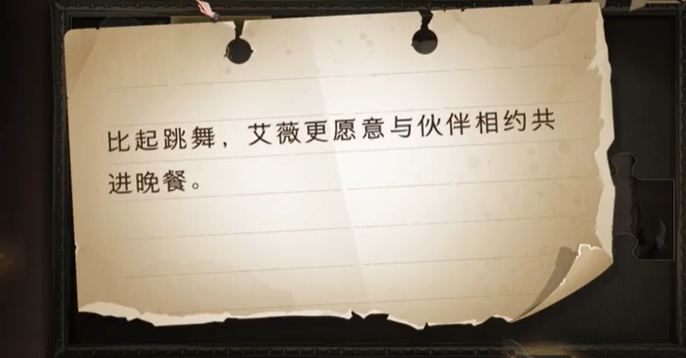 比起跳舞，艾薇更愿意与伙伴相约共
进晚餐。